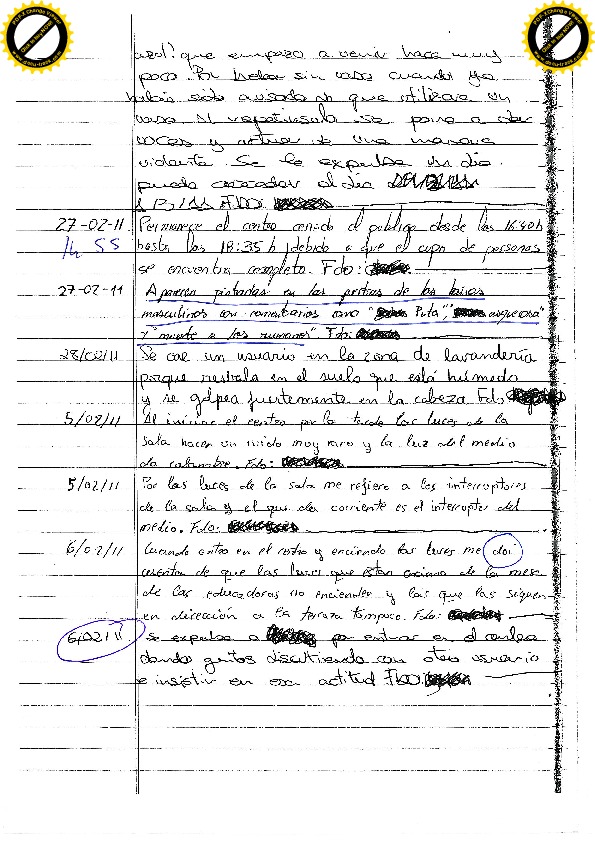 que empezo a venir hace muy
poco. Por beber sin vaso cuando ya
habia sido avisado que utilizase un
vaso. Al se pone a dar
voces y actuar de una manera
violenta. Se le expulsa un dia
puede acceder el dia
FDO
27-02-11 Permanece el centro cerrado al público desde las 16:40h
hasta las 18:35 h debido a que el cupo de personas
se encuentra completo. Fdo:
27-02-11 Aparecen pintadas en las puertas de los baños
masculinos con comentarios como " Puta", " asquerosa"
y "muerte a los rumanos". Fdo:
28/02/11 Se cae un usuario en la zona de lavandería
porque resbala en el suelo que está húmedo
y se golpea fuertemente en la cabeza Fdo
5/02/11 Al iniciar el centro por la tarde las luces de la
sala hacen un ruido muy raro y la luz del medio
da calambre. Fdo:
5/02/11 Por las luces de la sala me refiero a los interruptores
de la sala y el que da corriente es el interruptor del
medio. Fdo:
6/02/11 Cuando entro en el centro y enciendo las luces me doi
cuenta de que las luces que están encima de la mesa
de las educadoras no encienden y las que las siguen
en dirección a la terraza tampoco. Fdo:
6/02/11 se expulsa a por entrar en el centro
dando gritos discutiendo con otro usuario
e insistir en esa actitud FDO: